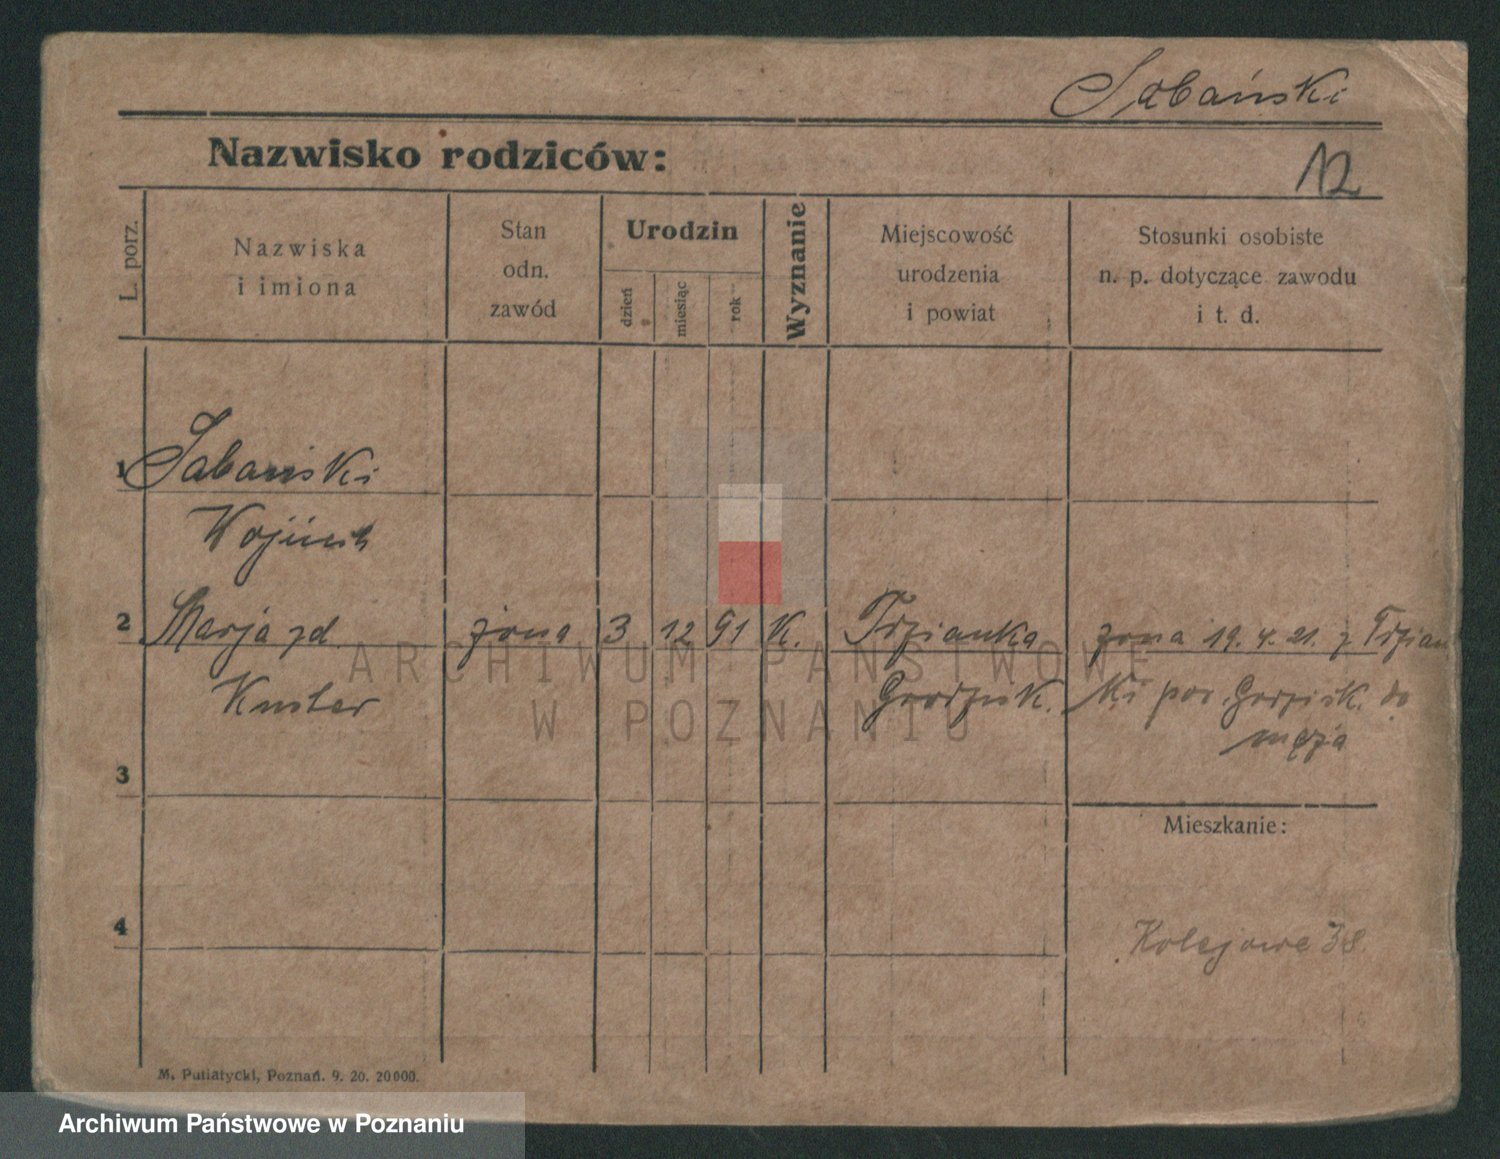 Sabański
Nazwisko rodziców:
12
L. porz.
Nazwiska
i imiona
Stan
odn.
zawód
Urodzin
dzień
miesiąc
rok
Wyznanie
Miejscowość
urodzenia
i powiat
Stosunki osobiste
n. p. dotyczące zawodu
i t. d.
1 Sabański
Wojciech
2 Marja zd. żona 3 12 91 K. Trzianka żona 19. 4. 21. z Trzian
Kuster Grodzisk. ki pow. Grodzisk. do
męża
3
Mieszkanie:
4
Kolejowa 38.
M. Putiatycki, Poznań. 9. 20. 20000.
ARCHIWUM PAŃSTWOWE
W POZNANIU
Archiwum Państwowe w Poznaniu